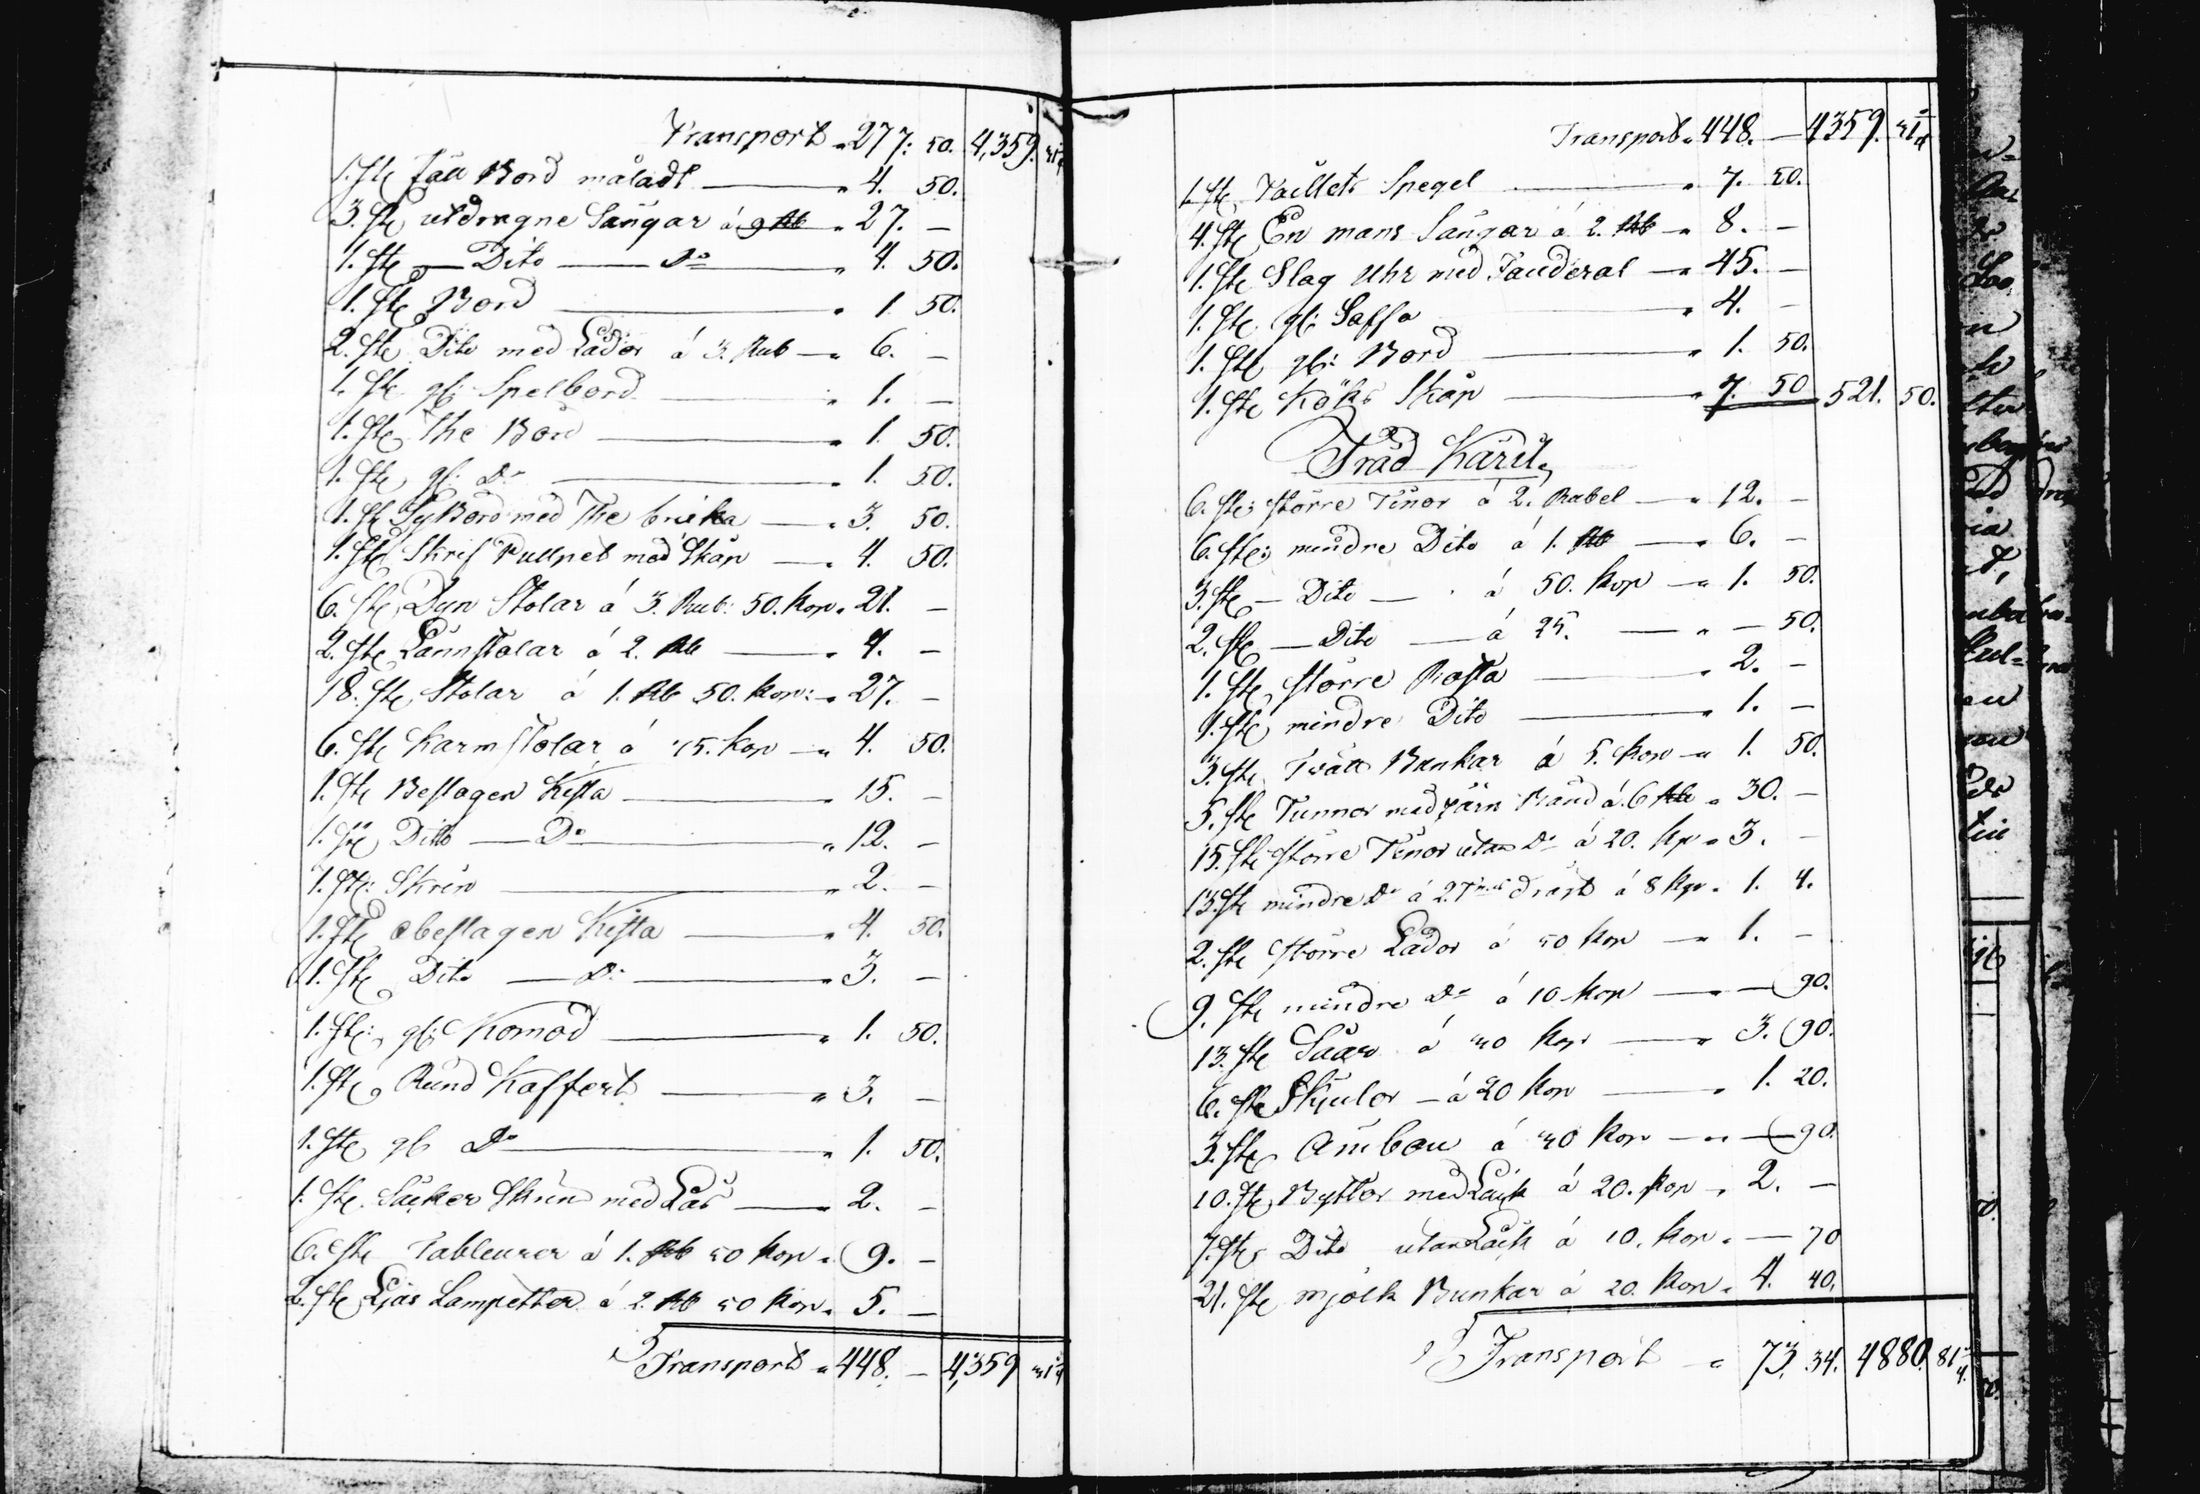 Transport " 277: 50. 4,359. 31 1/4
1. st: fäll Bord måladt — " 4. 50.
3. st: utdragne Sängar á 9 Rb " 27. —
1. st: — Dito — Do — " 4. 50.
1. st: Bord — " 1. 50.
2. st: Dito med Lådor á 3. Rub — " 6. —
1. st: gl: Spelbord — " 1. —
1. st: The Bord — " 1. 50.
1. st: gl: Do — " 1. 50.
1. st: SyBord med The bricka — " 3. 50.
1. st: Skrif Pullpet med Skåp — " 4. 50.
6. st: Dyn Stolar á 3. Rub: 50. Kop " 21. —
2. st: Länstolar á 2. Rb — " 4. —
18. st: Stolar á 1. Rb 50. Kop: " 27. —
6. st: Karmstolar á 75. Kop — " 4. 50.
1. st: Beslagen Kista — " 15. —
1. st: Dito — Do — " 12. —
1. st: Skrin — " 2. —
1. st: obeslagen Kista — " 4. 50.
1. st: Dito — Do — " 3. —
1. st: gl: Komod — " 1. 50.
1. st: Rund Koffert — " 3. —
1. st: gl Do — " 1. 50.
1. st: Såcker Skrin med Lås — " 2. —
6. st: Tableurer á 1. Rb 50 Kop " 9. —
2. st: Ljus Lampetter á 2. Rb 50 Kop " 5. —
Transport " 448. — 4,359 31 1/4
Transport " 448. — 4359. 31 1/4
1. st: Taillets Spegel — " 7. 50.
4. st: En mans Sängar á 2. Rb — " 8. —
1. st: Slag Uhr med Fauderal — " 45. —
1. st: gl: Saffa — " 4. —
1. st: gl: Bord — " 1. 50.
1. st: Köks Skåp — " 7. 50 521. 50.
Träd Käril,
6. st: större Tinor á 2. Rubel — " 12. —
6. st: mindre Dito á 1. Rb — " 6. —
3. st: — Dito — á 50. Kop — " 1. 50.
2. st: — Dito — á 25. — " — 50.
1. st: större Rosta — " 2. —
1. st: mindre Dito — " 1. —
3. st: Tvätt Bunkar á 5. Kop — " 1. 50.
5. st: Tunnor med järn Band á 6 Rb " 30. —
15. st: större Tinor utan Do á 20. Kp " 3. —
13. st: mindre Do á á 8 Kop " 1. 4.
2. st: större Lådor á 50 Kop — " 1. —
9. st: mindre Do á 10 Kop — " — 90.
13. st: Såar á 30 Kop — " 3. 90.
6. st: Skjulor — á 20 Kop — " 1. 20.
3. st: Ämbar á 30 Kop — " — 90.
10. st: Byttor med Låck á 20. Kop " 2. —
7. st: Dito utan Låck á 10. Kop " — 70
21. st: mjölk Bunkar á 20. Kop " 4. 40.
Transport " 73. 34. 4880. 81 1/4